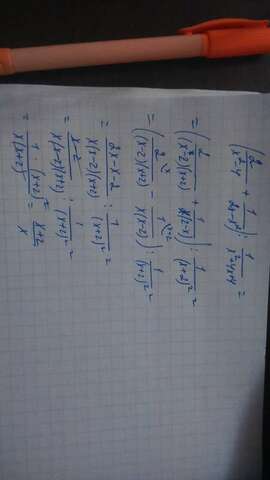 (2/(x²-4) + 1/(2x-x²)) : 1/(x²+4x+4) =
= (2/((x-2)(x+2)) + 1/(x(2-x))) : 1/(x+2)² =
= (2/((x-2)(x+2)) - 1/(x(x-2))) : 1/(x+2)² =
= (2x-x-2)/(x(x-2)(x+2)) : 1/(x+2)² =
= (x-2)/(x(x-2)(x+2)) : 1/(x+2)² =
= 1/(x(x+2)) · (x+2)² = (x+2)/x